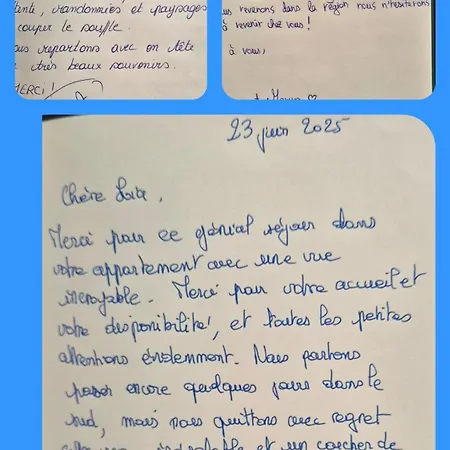 tente, randonnées et paysages
couper le souffle.
ous repartons avec en tête
très beaux souvenirs.
MERCI!
us revenons dans la région nous n'hésiterons
à revenir chez vous!
à vous,
23 juin 2025
Chère
Merci pour ce génial séjour dans
votre appartement avec une vue
incroyable. Merci pour votre accueil et
votre disponibilité, et toutes les petites
attentions évidemment. Nous partons
passer encore quelques jours dans le
sud, mais nous quittons avec regret
et un coucher de